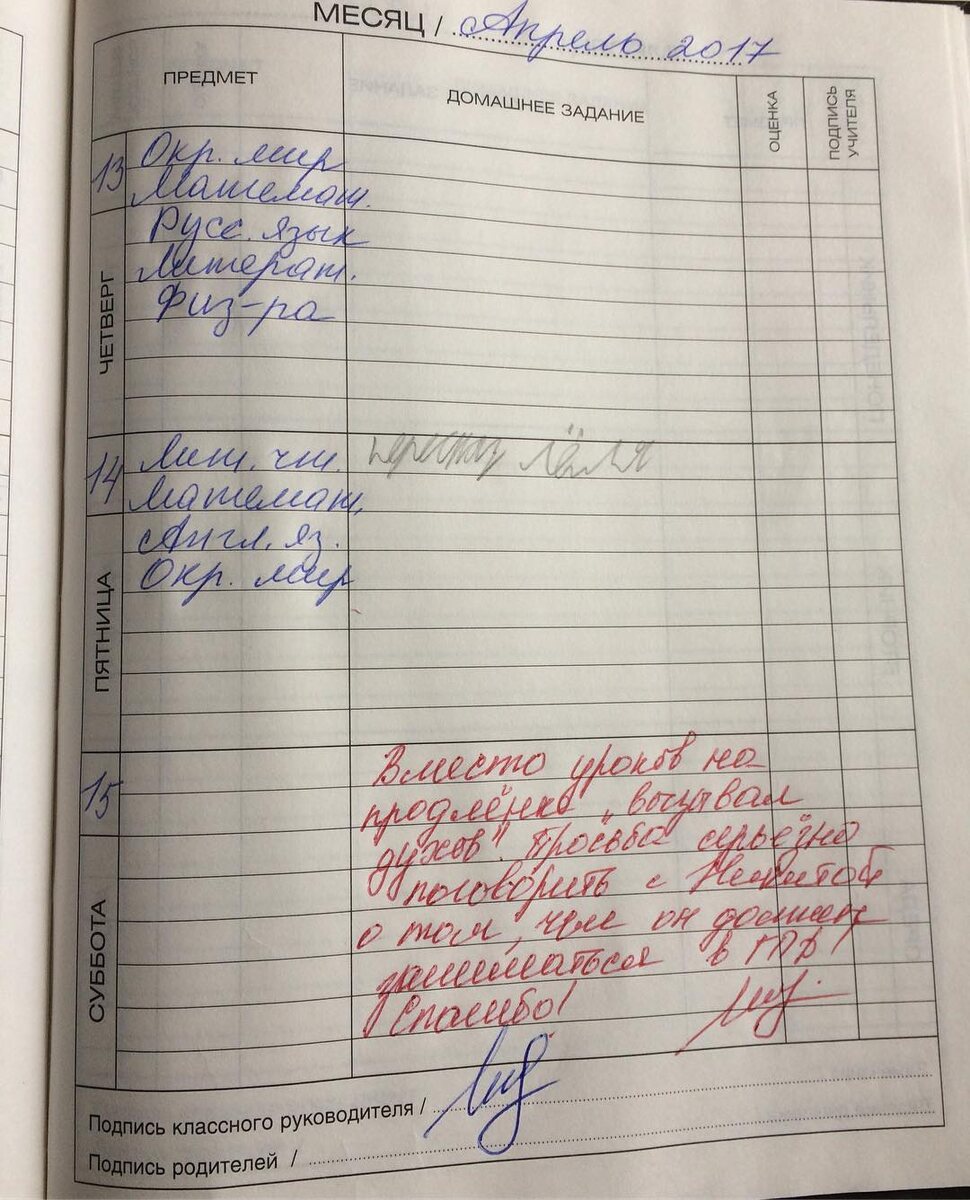 МЕСЯЦ / Апрель 2017
ПРЕДМЕТ
ДОМАШНЕЕ ЗАДАНИЕ
ОЦЕНКА
ПОДПИСЬ УЧИТЕЛЯ
13
ЧЕТВЕРГ
Окр. мир
Математ.
Русс. язык
Литерат.
Физ-ра
14
ПЯТНИЦА
Лит. чт. пересказ Лёля
Математ.
Англ. яз.
Окр. мир
15
СУББОТА
Вместо уроков на
продлёнке „вызывал
духов". Просьба серьёзно
поговорить с Никитой
о том, чем он должен
заниматься в ГПД!
Спасибо!
Подпись классного руководителя /
Подпись родителей /